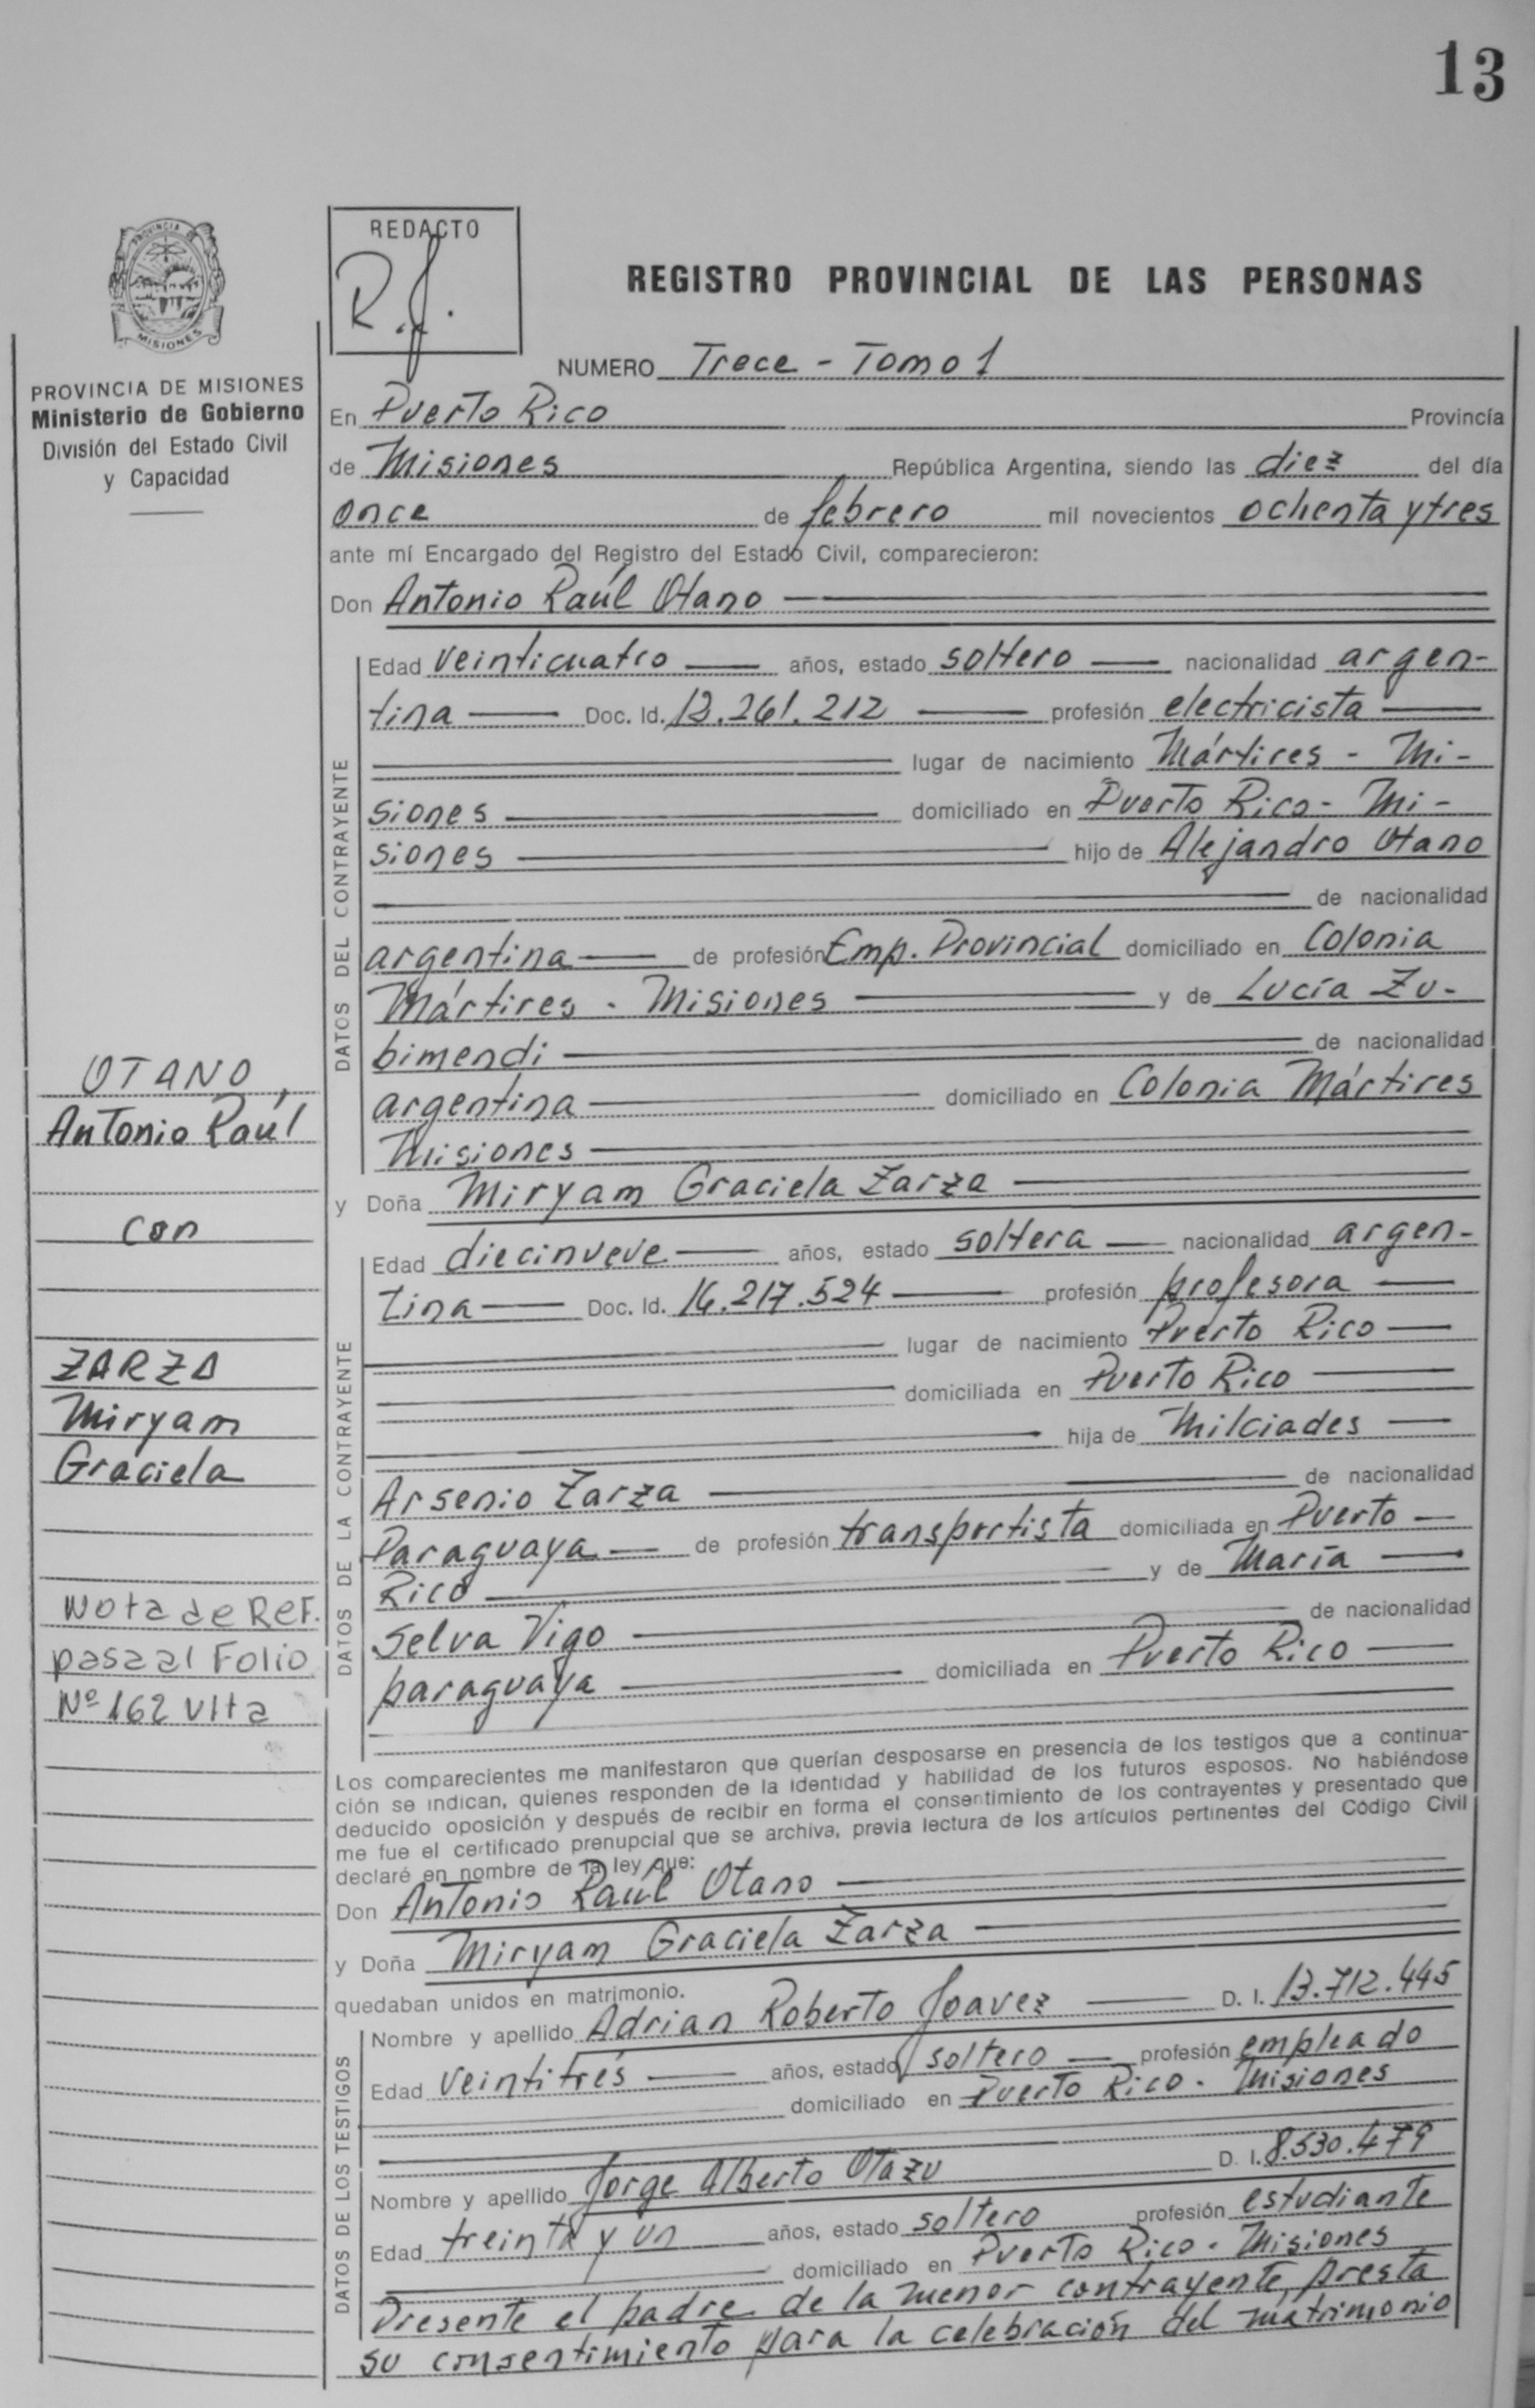 13
PROVINCIA DE
MISIONES
REDACTO
R.J.
REGISTRO PROVINCIAL DE LAS PERSONAS
PROVINCIA DE MISIONES
Ministerio de Gobierno
División del Estado Civil
y Capacidad
NUMERO Trece - Tomo 1
En Puerto Rico Provincia
de Misiones República Argentina, siendo las diez del día
once de febrero mil novecientos ochenta y tres
ante mí Encargado del Registro del Estado Civil, comparecieron:
Don Antonio Raúl Otano
DATOS DEL CONTRAYENTE
Edad veinticuatro años, estado soltero nacionalidad argen-
tina Doc. Id. 13.261.212 profesión electricista
lugar de nacimiento Mártires - Mi-
siones domiciliado en Puerto Rico - Mi-
siones hijo de Alejandro Otano
de nacionalidad
argentina de profesión Emp. Provincial domiciliado en Colonia
Mártires - Misiones y de Lucía Zu-
bimendi de nacionalidad
argentina domiciliado en Colonia Mártires
Misiones
y Doña Miryam Graciela Zarza
OTANO,
Antonio Raúl
con
ZARZA
Miryam
Graciela
Nota de Ref.
pasa al Folio
Nº 162 Vlta
DATOS DE LA CONTRAYENTE
Edad diecinueve años, estado soltera nacionalidad argen-
tina Doc. Id. 16.217.524 profesión profesora
lugar de nacimiento Puerto Rico
domiciliada en Puerto Rico
hija de Milciades
Arsenio Zarza de nacionalidad
Paraguaya de profesión transportista domiciliada en Puerto
Rico y de María
Selva Vigo de nacionalidad
paraguaya domiciliada en Puerto Rico
Los comparecientes me manifestaron que querían desposarse en presencia de los testigos que a continua-
ción se indican, quienes responden de la identidad y habilidad de los futuros esposos. No habiéndose
deducido oposición y después de recibir en forma el consentimiento de los contrayentes y presentado que
me fue el certificado prenupcial que se archiva, previa lectura de los artículos pertinentes del Código Civil
declaré en nombre de la ley que:
Don Antonio Raúl Otano
y Doña Miryam Graciela Zarza
quedaban unidos en matrimonio.
DATOS DE LOS TESTIGOS
Nombre y apellido Adrian Roberto Joavez D. I. 13.712.445
Edad veintitrés años, estado soltero profesión empleado
domiciliado en Puerto Rico - Misiones
Nombre y apellido Jorge Alberto Otazu D. I. 8.530.479
Edad treinta y un años, estado soltero profesión estudiante
domiciliado en Puerto Rico - Misiones
Presente el padre de la menor contrayente, presta
su consentimiento para la celebración del matrimonio